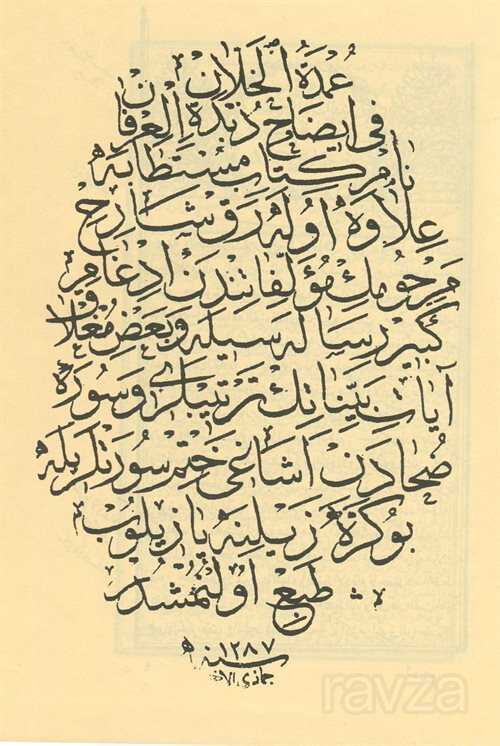 عُمْدَةُ الْخَلَّانِ
فِى اِيضَاحِ زُبْدَةِ الْعِرْفَانِ
نَامْ كِتَابِ مُسْتَطَابَه
عِلَاوَه اُولَه رَقْ شَارِحِ
مَرْحُومِكْ مُؤَلَّفَاتِنْدَنْ اِدْغَامِ
كَبِيرْ رِسَالَه سِيلَه وَبَعْضِ مُغْلَاقِ
آيَاتِ بَيِّنَاتِكْ تَرْتِيبْلَرِى وَسُورَهٔ
ضُحَادَنْ اَشَاغِى خَتْمِ سُورَتْلَرِيلَه
بُو كَرَّه زَيْلِنَه يَازِيلُوبْ
طَبْعْ اُولُنْمُشْدُرْ
سنه ١٢٨٧
جماذى الاخر
ravza